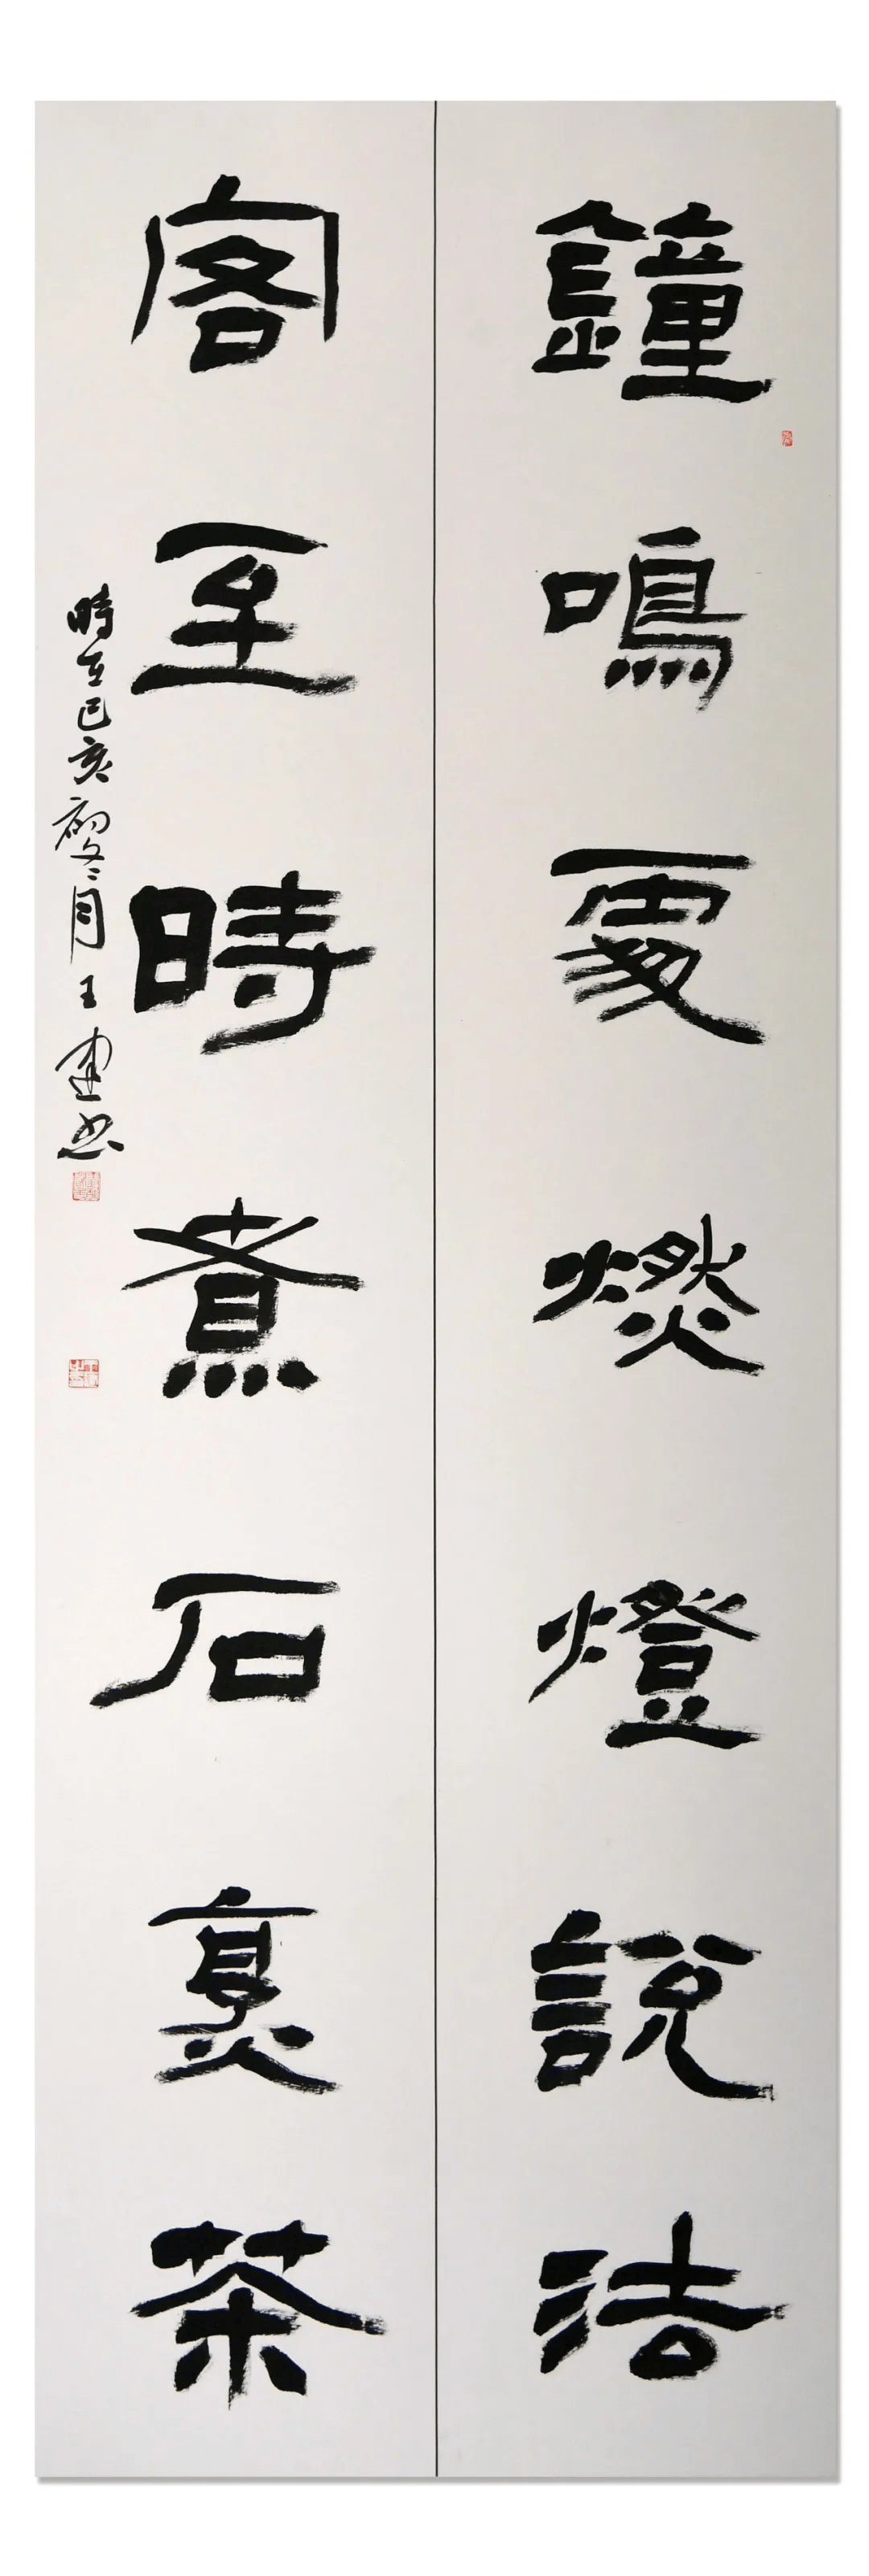 鐘鳴處燃燈說法
客至時煮石烹茶
時在己亥初冬月王建書